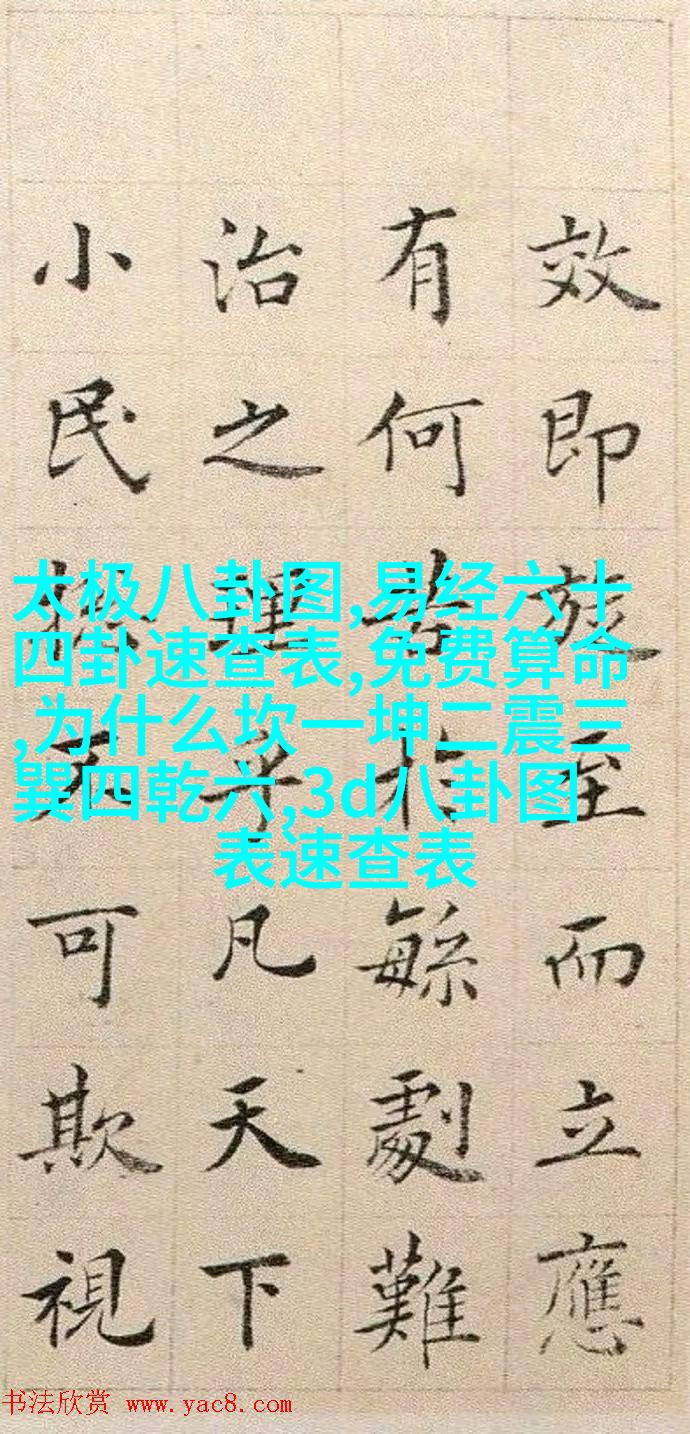 效即旋至而立應
有何苦扵緐劇難
治之理乎凡天下
小民可欺視
太极八卦图,易经六十
四卦速查表,免费算命
,为什么坎一坤二震三
巽四乾六,3d八卦图
表速查表
书法欣赏 www.yac8.com